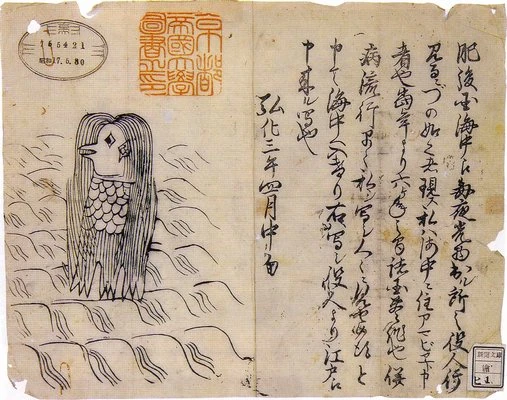 肥後国海中え毎夜光物出ル所之役人行
見るニづの如之者現ス私ハ海中ニ住アマビヱト申
者也当年より六ヶ年之間諸国豊作也併
病流行早々私ヲ写シ人々ニ見セ候得と
申て海中へ入けり右写シ役人より江戸え
申来ル写也
弘化三年四月中旬
京都
帝國大學
圖書之印
昭和17.6.30
新聞文庫